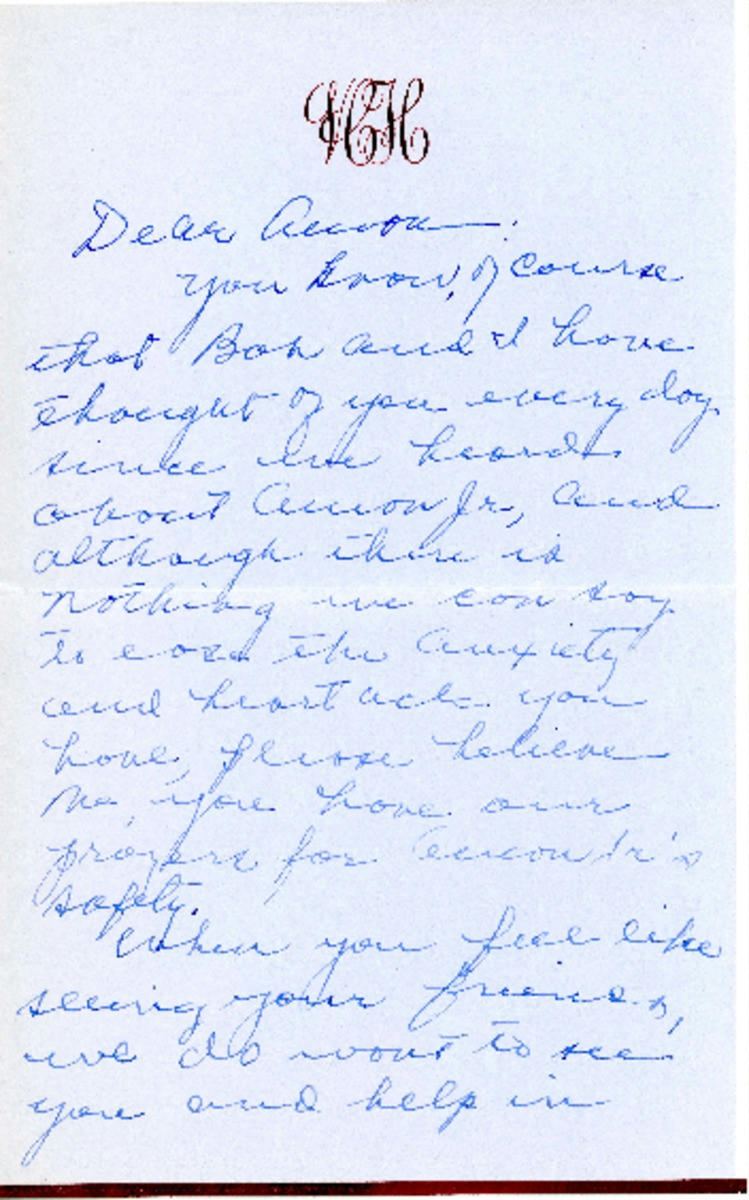 Dear Amon.
you know, of course
that Bob and I have
thought of you every day
since we heard
about Amon Jr, and
although there is
nothing we can say
to ease the anxiety
and heart ache you
have, please believe
me, you have our
prayers for Amon Jr's
safety.
When you feel like
seeing your friends,
we do want to see
you and help in